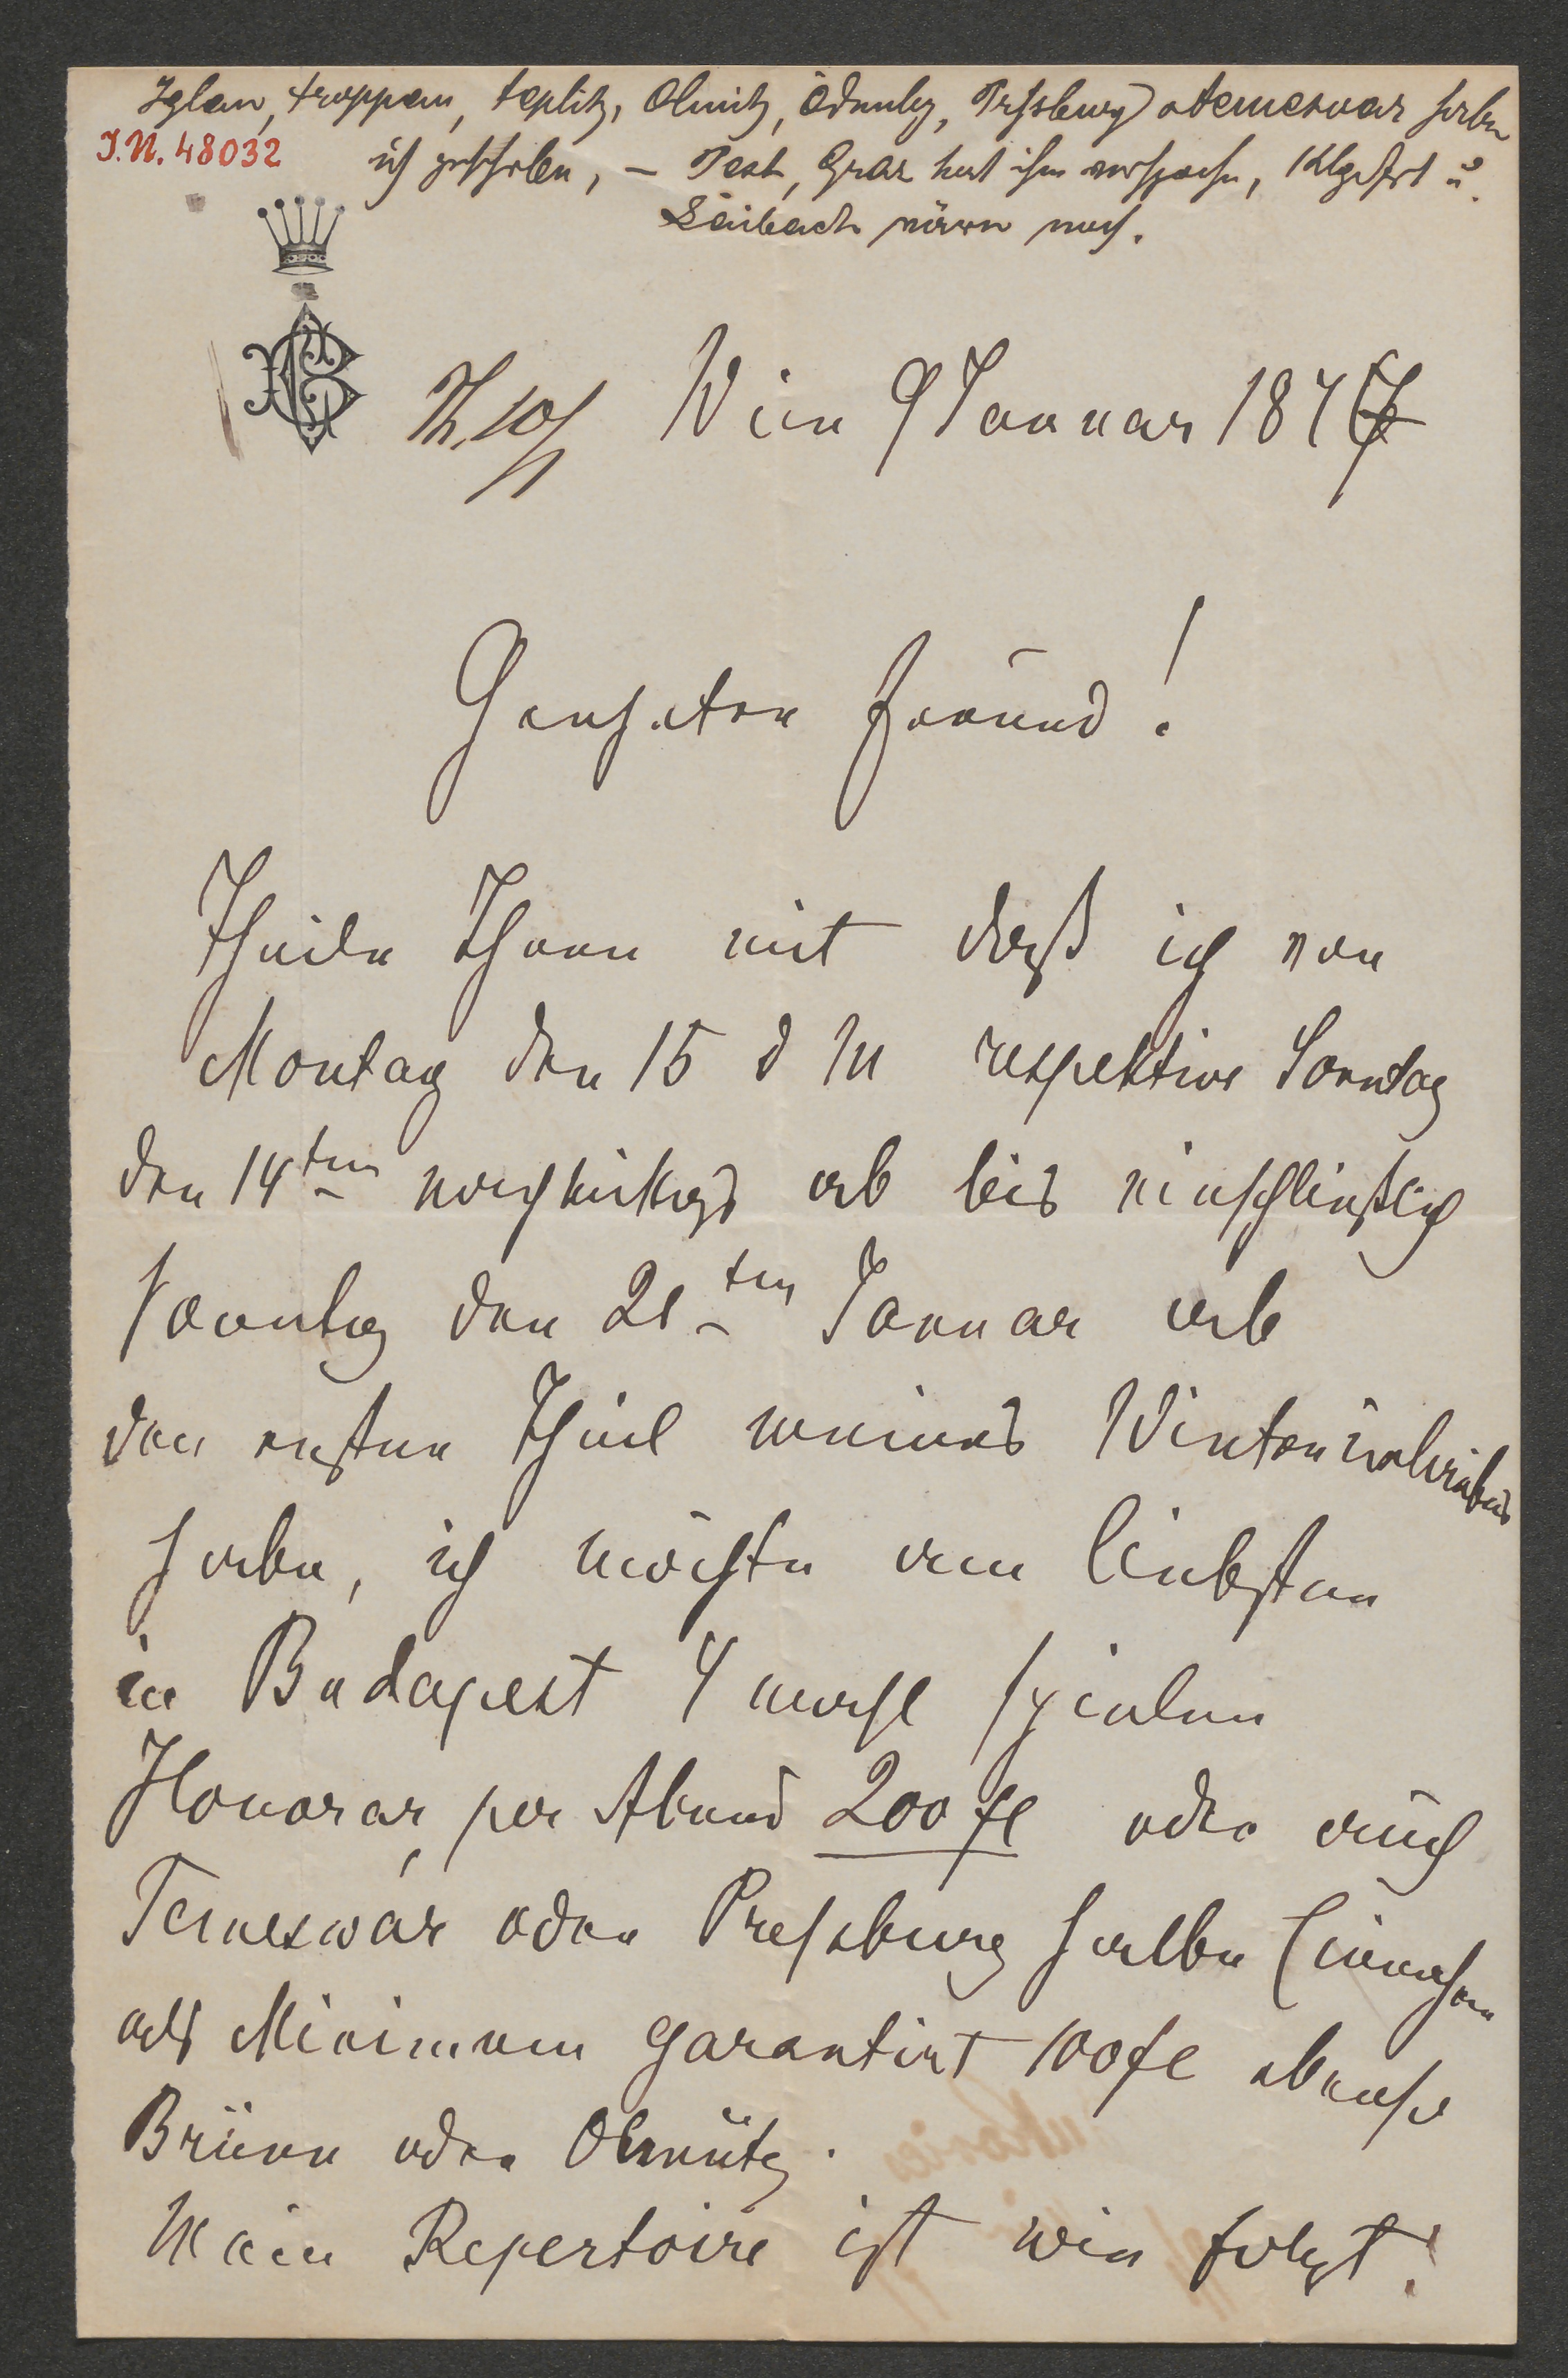 Iglau, troppau, teplitz, Olmütz, Ödenbg, Preßburg Temesvar habe
I.N. 48032
ich geschrieben, – Pest, Graz hat ihm versprochen, Klgfrt u.
Laibach wären noch.
Wien 9 Januar 1877
Geehrter Freund!
Theile Ihnen mit daß ich von
Montag den 15 d M respektive Sonntag
den 14ten nachmittags ab bis einschließlich
Sonntag den 21ten Januar ab
den ersten Theil meines Winterurlaubes
habe, ich möchte am liebsten
in Budapest 4 mahl spielen
Honorar per Abend 200 fl oder auch
Temeswár oder Preßburg halbe Einnahme
als Minimum garantirt 100 fl ebenso
Brünn oder Olmütz.
Mein Repertoire ist wie folgt: